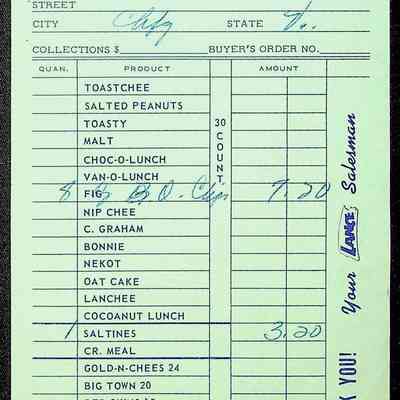 STREET
CITY Chfg STATE Va.
COLLECTIONS $ BUYER'S ORDER NO.
QUAN. PRODUCT AMOUNT
TOASTCHEE
SALTED PEANUTS
TOASTY
MALT
CHOC-O-LUNCH
VAN-O-LUNCH
8 FIG B Q. Chips 7.20
NIP CHEE
C. GRAHAM
BONNIE
NEKOT
OAT CAKE
LANCHEE
COCOANUT LUNCH
1 SALTINES 3.20
CR. MEAL
GOLD-N-CHEES 24
BIG TOWN 20
30 COUNT
Your LANCE Salesman
K YOU!